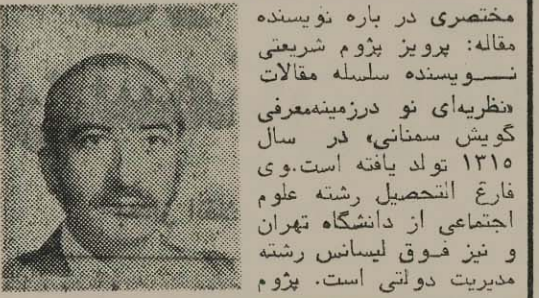 مختصری در باره نویسنده
مقاله: پرویز پژوم شریعتی
نــویسنده سلسله مقالات
«نظریه‌ای نو درزمینه‌معرفی
گویش سمنانی» در سال
۱۳۱۵ تولد یافته است.وی
فارغ التحصیل رشته علوم
اجتماعی از دانشگاه تهران
و نیز فــوق لیسانس رشته
مدیریت دولتی است. پژوم